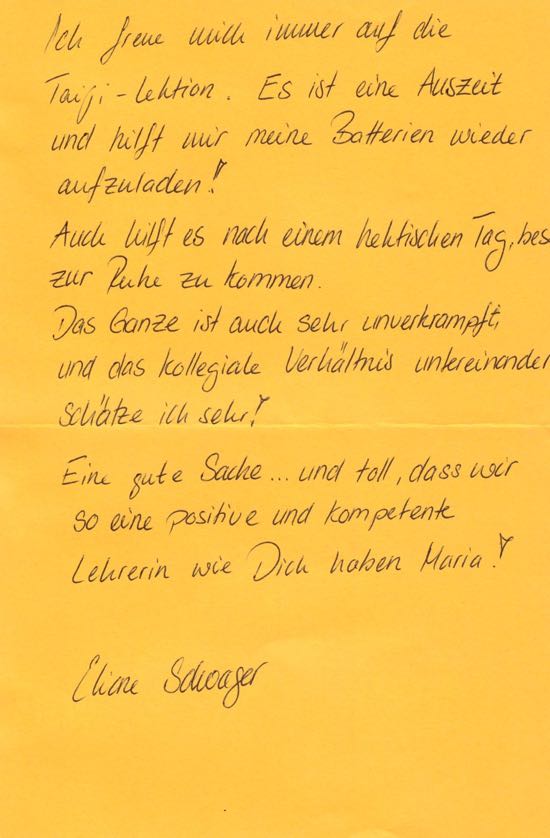 Ich freue mich immer auf die
Taiji-Lektion. Es ist eine Auszeit
und hilft mir meine Batterien wieder
aufzuladen!
Auch hilft es nach einem hektischen Tag, bes
zur Ruhe zu kommen.
Das Ganze ist auch sehr unverkrampft,
und das kollegiale Verhältnis untereinander
schätze ich sehr!
Eine gute Sache... und toll, dass wir
so eine positive und kompetente
Lehrerin wie Dich haben Maria!
Eliane Schwager